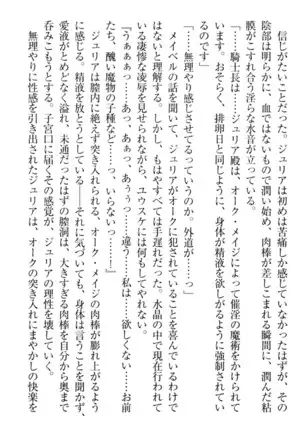 信じがたいことだった。ジュリアは初めは苦痛しか感じていなかったはずが、
陰部は明らかに、血ではないもので潤い始め、肉棒が差しこまれる瞬間、潤んだ粘
膜がこすれ合う淫らな水音が立っている。
「……騎士長は……ジュリア殿は、オーク・メイジに催淫の魔術をかけられて
います。おそらく、排卵日と同じように、身体が精液を欲しがるように強制されてい
るのです」
「……無理やり感じさせてるっていうのか。外道が……っ」
メイベルの話を聞いて、ジュリアがオークに犯されていることを喜んでいるわけで
はないと理解する。しかし、もはやすべては手遅れだった。水晶の中で現在行われて
いる凄惨な凌辱を見せられながら、ユウスケには何もしてやれない。
「うぁぁぁっ……あっ、あっ、あぅぅっ……違う……私は……欲しくない……お前
たち、醜い魔物の子種など……い、いらない……っ……！」
ジュリアは膣内に絶えず突き入れられる、オーク・メイジの肉棒が膨れ上がるよう
に感じる。精液を放とうとしている──それに気づいても、身体は言うことを聞かず、
愛液がとめどなく溢れ、未通だったはずの膣洞は、大きすぎる肉棒を自分から奥まで
呑みこもうとする。子宮口に届くその感覚が、ジュリアの理性を壊していく。
無理やりに性感を引き出されたジュリアは、オークの突き入れにまやかしの快楽を